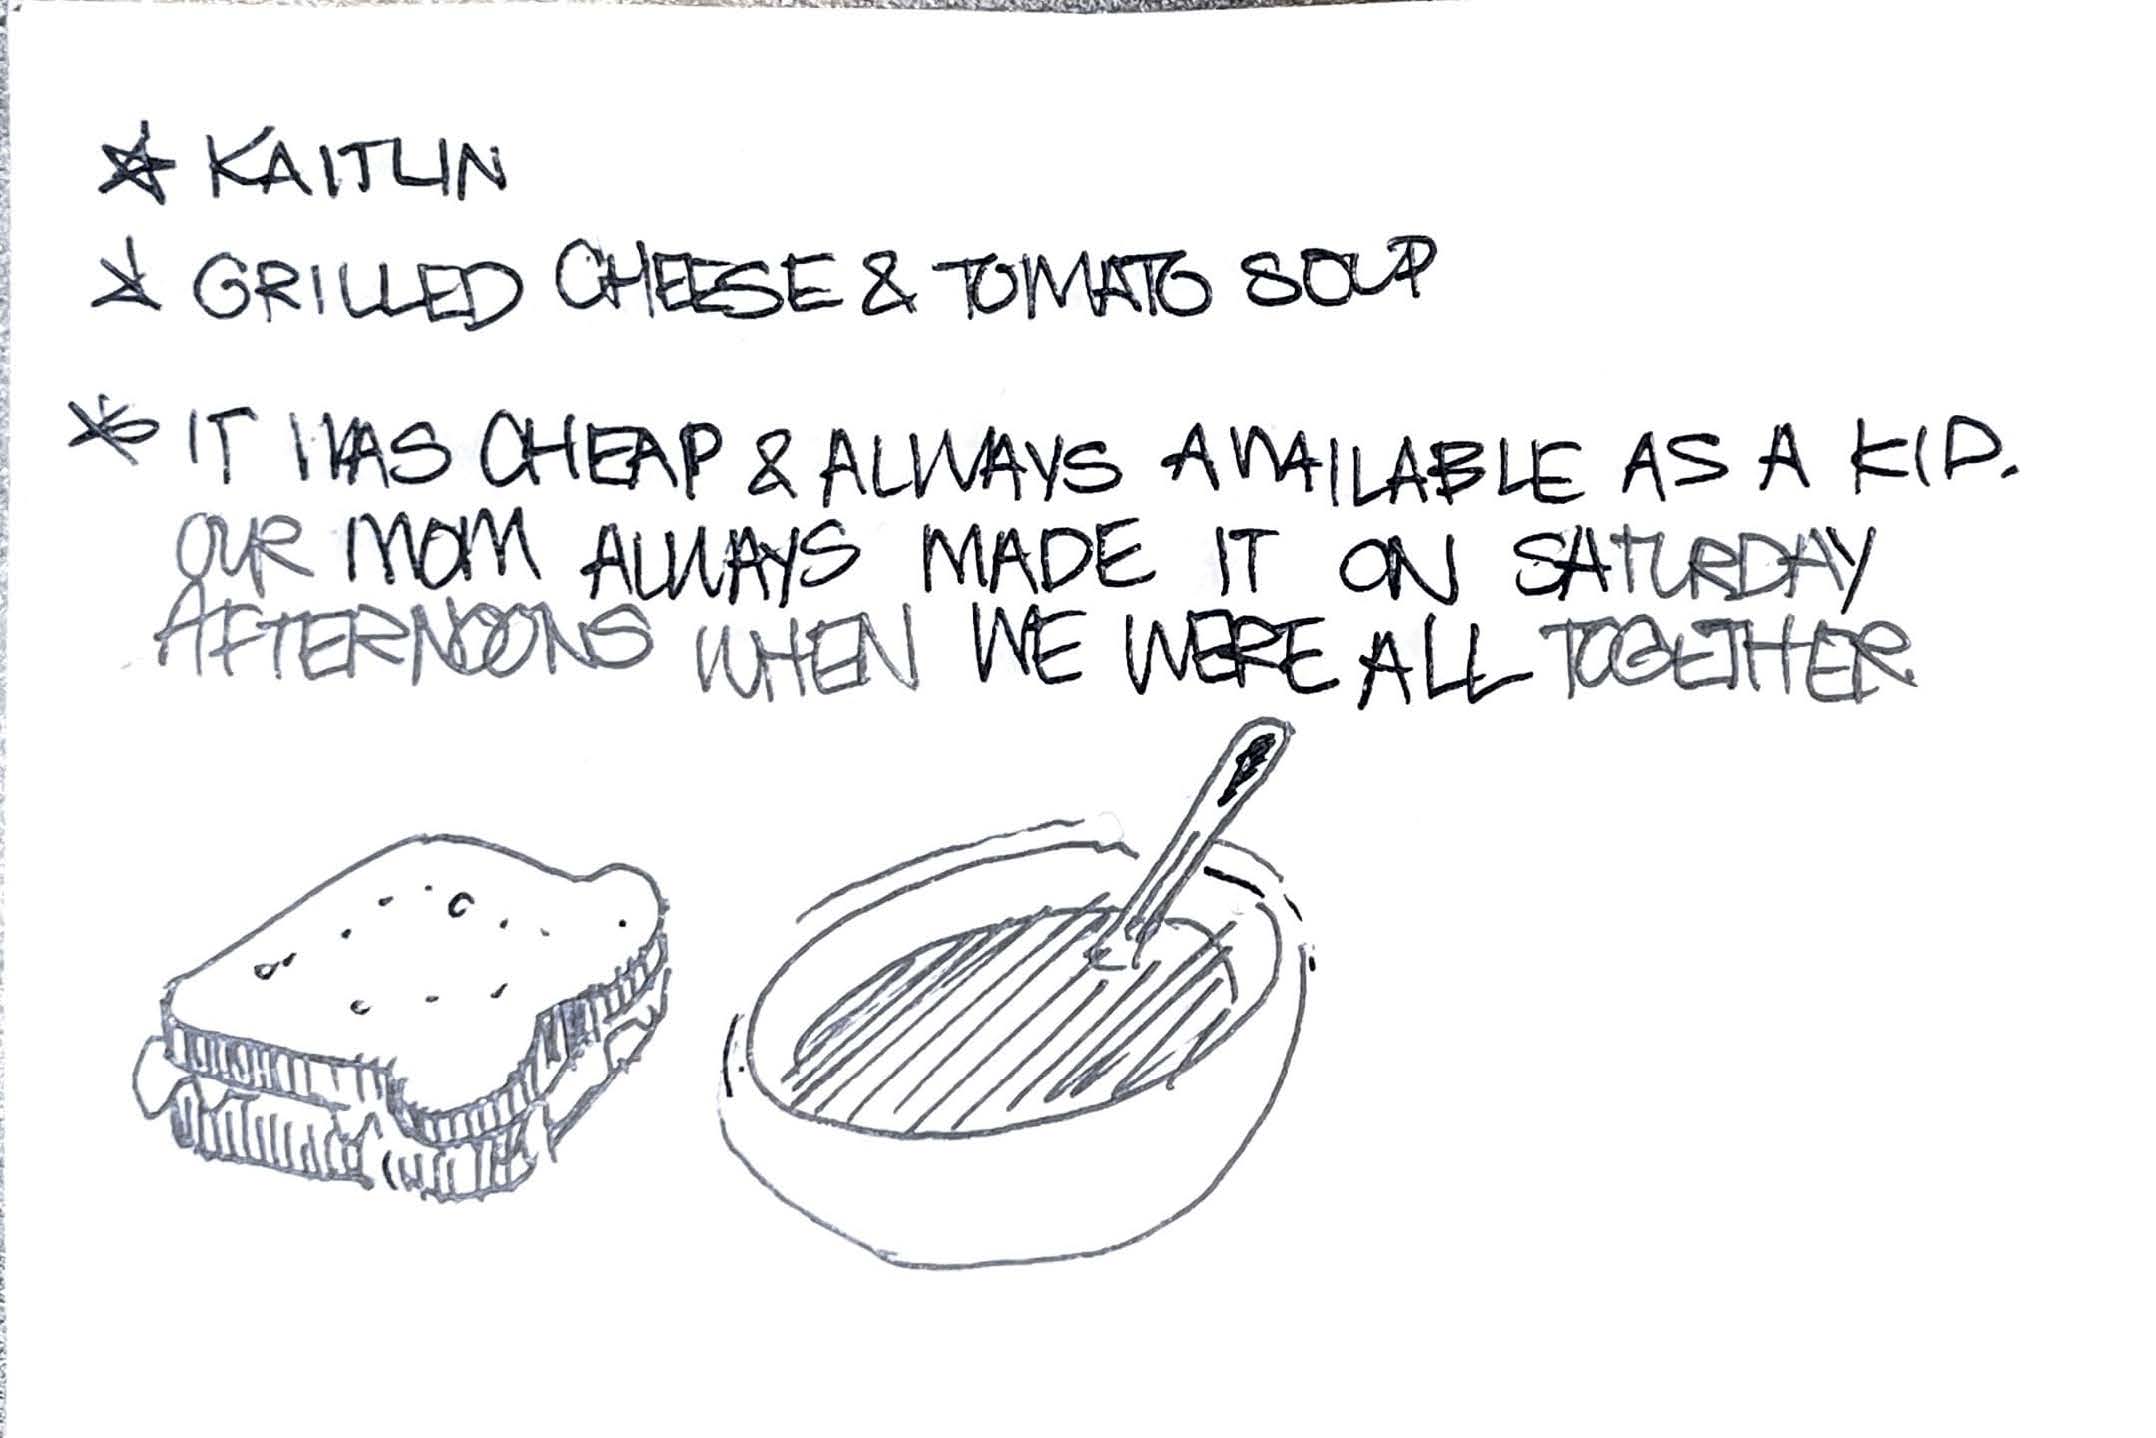 KAITLIN
GRILLED CHEESE & TOMATO SOUP
IT WAS CHEAP & ALWAYS AVAILABLE AS A KID.
OUR MOM ALWAYS MADE IT ON SATURDAY
AFTERNOONS WHEN WE WERE ALL TOGETHER.